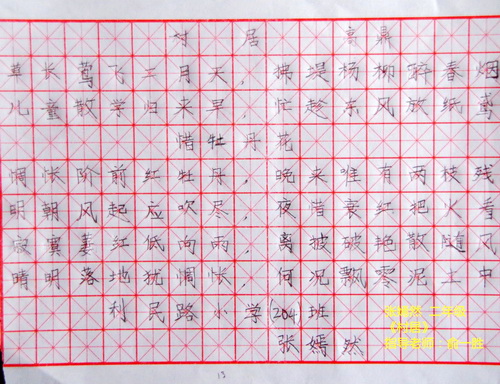 村居 高鼎
草长莺飞二月天，拂堤杨柳醉春烟
儿童散学归来早，忙趁东风放纸鸢
惜牡丹花
惆怅阶前红牡丹，晚来唯有两枝残
明朝风起应吹尽，夜惜衰红把火看
寂寞萎红低向雨，离披破艳散随风
晴明落地犹惆怅，何况飘零泥土中
利民路小学(204)班
张嫣然
13
张嫣然 二年级
《村居》
指导老师